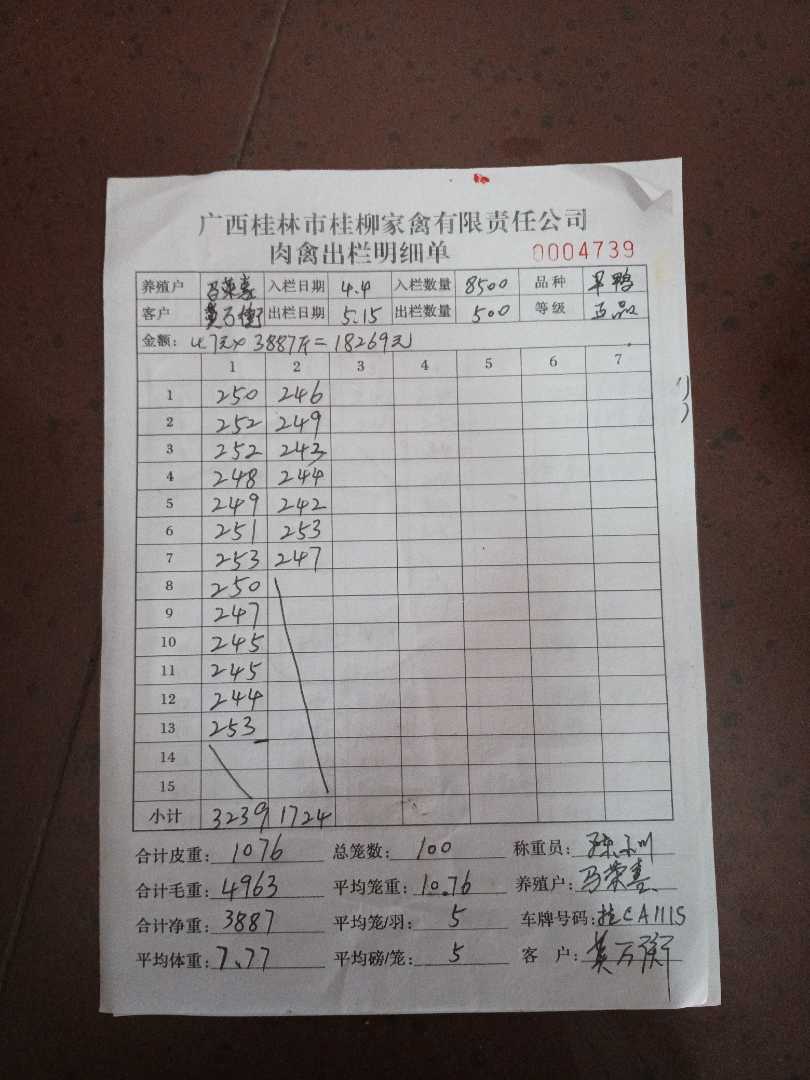 广西桂林市桂柳家禽有限责任公司
肉禽出栏明细单 0004739
养殖户 马荣喜 入栏日期 4.4 入栏数量 8500 品种 旱鸭
客户 莫万衡 出栏日期 5.15 出栏数量 500 等级 正品
金额: 4.7元× 3887斤=18269元
1 2 3 4 5 6 7
1 250 246
2 252 249
3 252 243
4 248 244
5 249 242
6 251 253
7 253 247
8 250
9 247
10 245
11 245
12 244
13 253
14
15
小计 3239 1724
合计皮重: 1076 总笼数: 100 称重员:
合计毛重: 4963 平均笼重: 10.76 养殖户: 马荣喜
合计净重: 3887 平均笼/羽: 5 车牌号码: 桂CA1115
平均体重: 7.77 平均磅/笼: 5 客户: 莫万衡